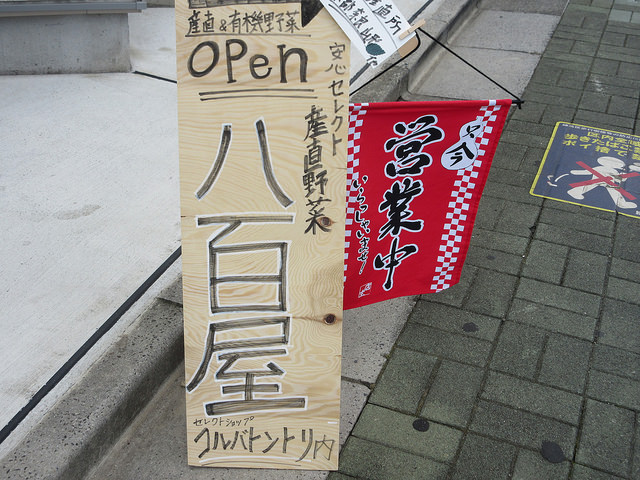 産直&有機野菜
OPen
安心セレクト
産直野菜
八百屋
セレクトショップ
コルバトントリ内
只今
営業中
いらっしゃいませ!
区内全域
歩きたばこ
ポイ捨て
直売所